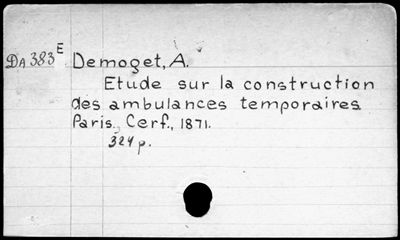 DA 383 E Demoget, A.
Etude sur la construction
des ambulances temporaires
Paris, Cerf., 1871.
324 p.